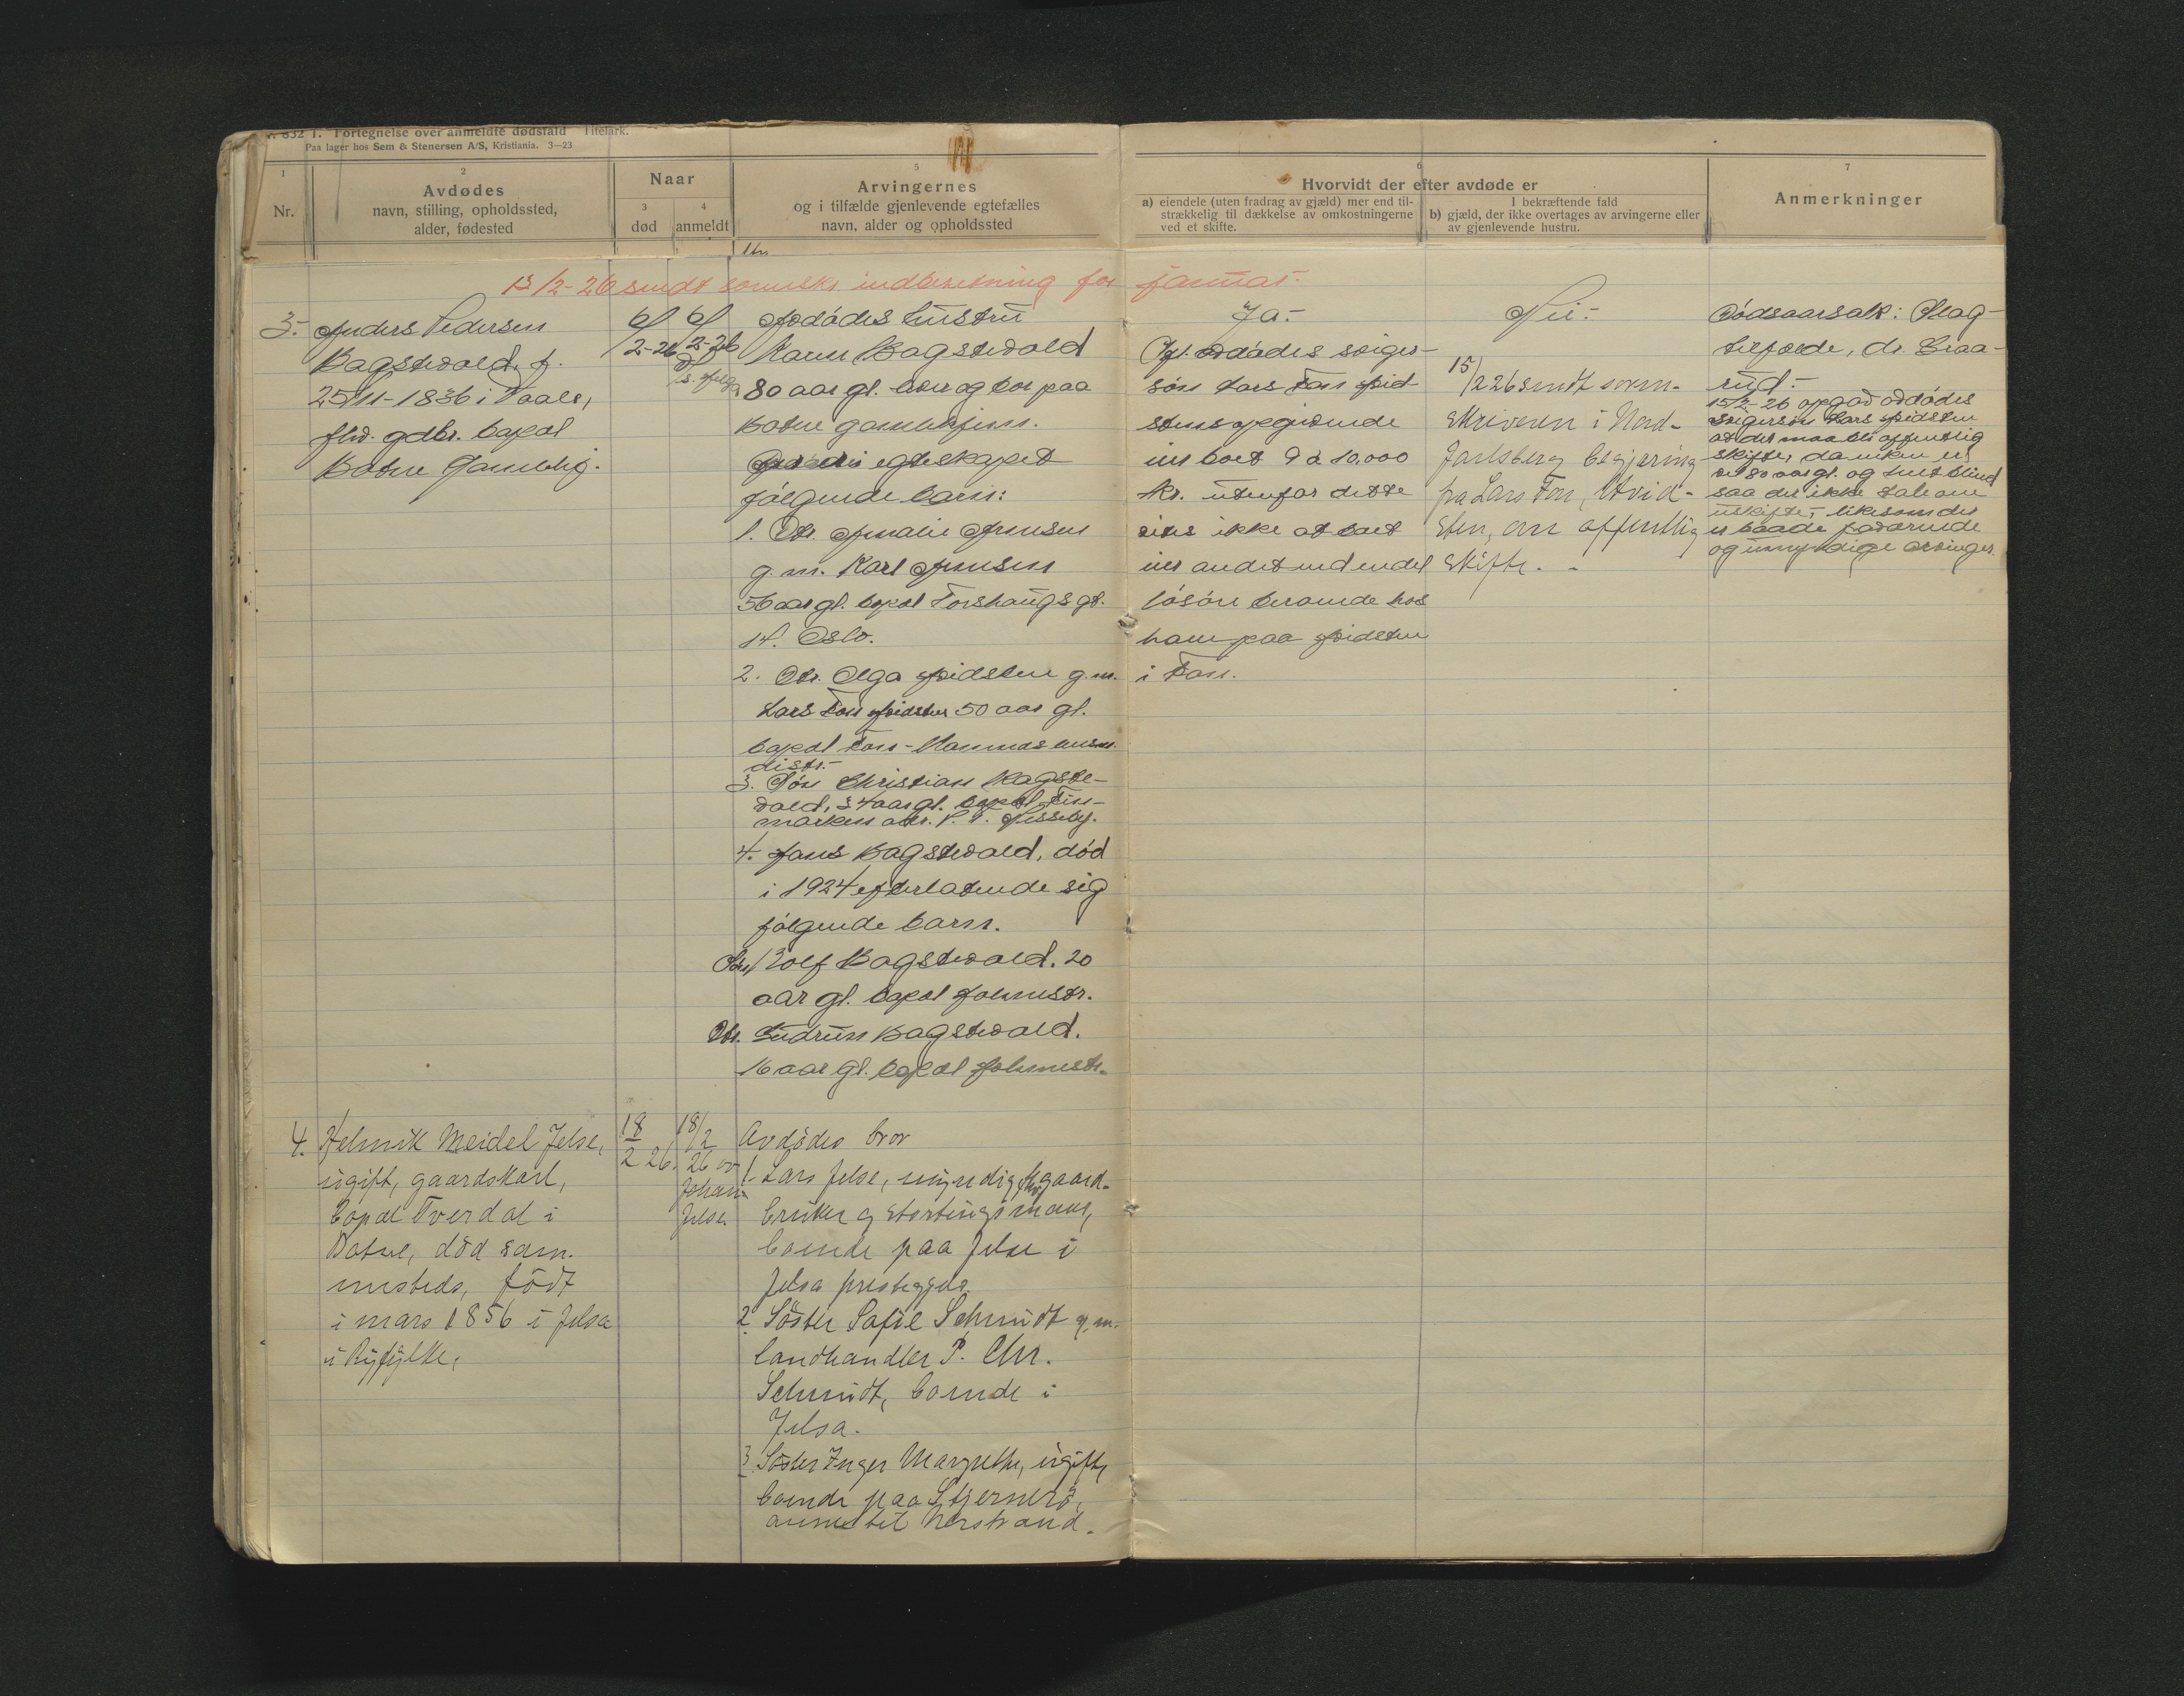 632 1. Fortegnelse over anmeldte dødsfald Titelark.
Paa lager hos Sem & Stenersen A/S, Kristiania. 3—23
1
Nr.
2
Avdødes
navn, stilling, opholdssted,
alder, fødested
Naar
3
død
4
anmeldt
5
Arvingernes
og i tilfælde gjenlevende egtefælles
navn, alder og opholdssted
6
Hvorvidt der efter avdøde er
a) eiendele (uten fradrag av gjæld) mer end til-
strækkelig til dækkelse av omkostningerne
ved et skifte.
I bekræftende fald
b) gjæld, der ikke overtages av arvingerne eller
av gjenlevende hustru.
7
Anmerkninger
13/2-26 sendt sorensks indberetning for januar.
3. Anders Pedersen
Bagstevold, f.
25/11-1836 i Vaale,
fhv. gdbr. bopæl
Botne Gamlehj.
6/2-26
6/2-26
Avdødes hustru
Karen Bagstevold
80 aar gl. bor paa
Botne gamlehjem.
egteskapet
følgende barn:
1. Dtr. Amalie Arnesen
g.m. Karl Arnesen
56 aar gl. bopæl Torshaugs gt.
14. Oslo.
2. Dtr. Olga Hvidsten g.m.
Lars Fon Hvidsten 50 aar gl.
bopæl Fon-
distr.-
3. Søn Christian Bagste-
vold, 34 aar gl. bopæl Fin-
marken adr. P. T. Nesseby.
4. Hans Bagstevold, død
i 1924 efterlatende sig
følgende barn.
Søn Rolf Bagstevold. 20
aar gl. bopæl Holmestr.
Dtr. Gudrun Bagstevold.
16 aar gl. bopæl Holmestr.
Ja.-
avdødes sviger-
søn Lars Fon Hvid-
stens opgivende
boet 9 à 10,000
kr. utenfor dette
vites ikke at boet
andet end endel
løsøre beroende hos
ham paa Hvidsten
i Fon.
Nei.-
15/2 26 sendt soren-
skriveren i Nord-
Jarlsberg begjæring
fra Lars Fon, Hvid-
sten, om offentlig
skifte. -
Dødsaarsak: Slag-
tilfælde, dr. Graa-
rud.-
15/2-26 opgav avdødes
svigersøn Lars Hvidsten
at det maa bli offentlig
skifte, da enken er
80 aar gl. og helt blind
saa der ikke tale om
uskifte, likesom der
er baade fraværende
og umyndige arvinger.
4. Helmik Meidel Jelse,
ugift, gaardskarl,
bopæl Tverdal i
Botne, død sam-
mesteds, født
i mars 1856 i Jelsa
i Ryfylke,
18/2 26.
18/2 26 av
Johan
Jelse.
Avdødes bror
1. Lars Jelse, myndig, gaard-
bruker og stortingsmand,
boende paa Jelse i
Jelsa prestegjeld.
2. Søster Sofie Schmidt g.m.
landhandler P. Chr.
Schmidt, boende i
Jelsa.
3. Søster Inger Margrethe, ugift,
boende paa Stjernerø,
Nerstrand.